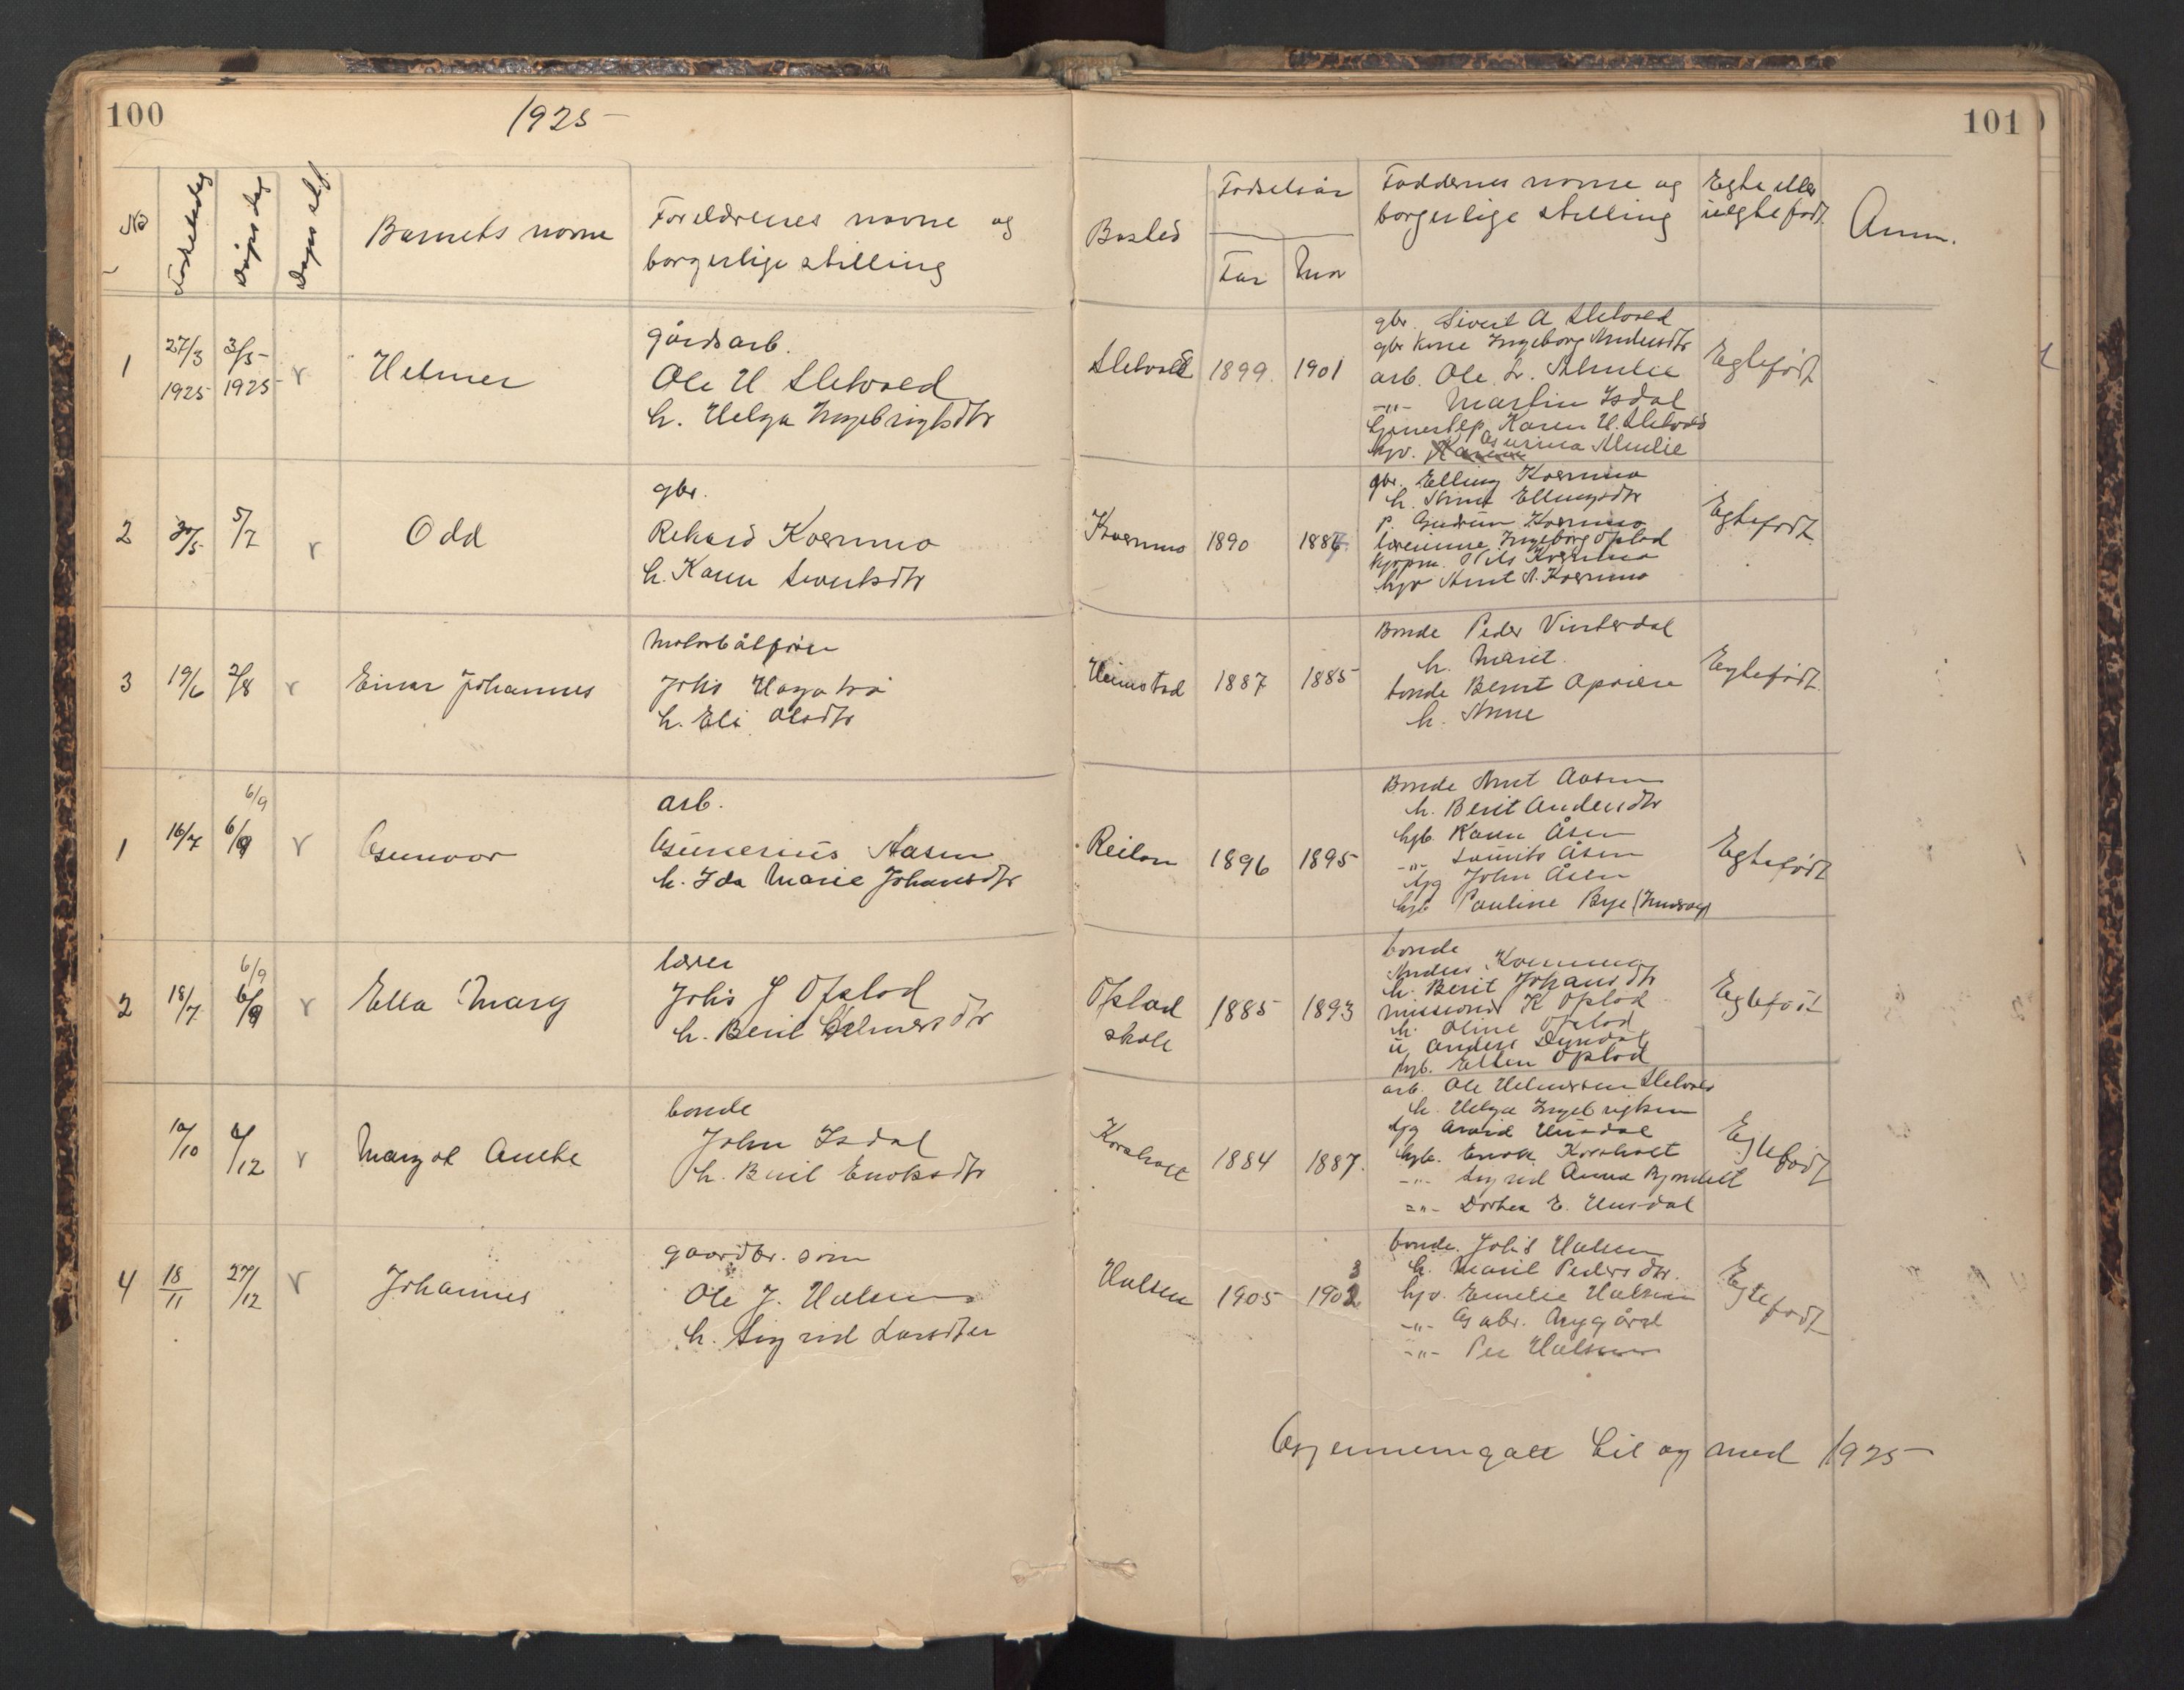 100
1925
101
No
Fødselsdag
Daabs dag
Daabs sted
Barnets navne
Forældrenes navne og
borgerlige stilling
Bosted
Fødselsår
Far
Mor
Faddernes navne og
borgerlige stilling
Egte eller
uegte født
Anm.
1
27/3
1925
3/5
1925
v
Helmer
gårdsarb.
Ole H. Sletvold
h. Helga Ingebrigtsdtr
Sletvold
1899
1901
gbr. Sivert A Sletvold
gbr kone Ingeborg Andersdtr
arb. Ole
-"- Martin Isdal
Karen H. Sletvold
hjv. Gunerina
Egtefødt
2
5/7
v
Odd
gbr.
Rikard Kvernmo
h. Karen Sivertsdtr
Kvernmo
1890
1887
gbr. Elling Kvernmo
h. Anne Ellingsdtr
p. Gudrun Kvernmo
lærerinne Ingeborg Opstad
Nils Kvernmo
hjv Arnt A. Kvernmo
Egtefødt
3
19/6
2/8
v
Einar Johannes
Motorbåtfører
Johs Hagatrø
h. Eli Olsdtr
Heimstad
1887
1885
Bonde Peder Vinterdal
h. Marit
bonde Bernt
h. Anne
Egtefødt
1
16/7
6/9
6/9
v
Gunvor
arb.
Gunerius Aasen
h. Ida Marie Johansdtr
Reilan
1896
1895
Bonde Arnt Aasen
h. Berit Andersdtr
hjb Karen Åsen
-"- Laurits Åsen
John Åsen
hjb Pauline Bye
Egtefødt
2
18/7
6/9
6/9
v
Ella Mary
lærer
Johs J Opstad
h. Berit Helmersdtr
Opstad
skole
1885
1893
bonde
Anders Kvernmo
h. Berit Johansdtr
K Opstad
h. Oline Opstad
u Anders
hjb. Ellen Opstad
Egtefødt
10/10
6/12
v
Margot Anethe
bonde
John Isdal
h. Berit Enoksdtr
Korsholt
1884
1887.
arb. Ole Helmersen Sletvold
h. Helga Ingebrigtsen
Arvid
hjb. Enok Korsholt
-"- Sigrid Anna
-"- Dorthea E.
Egtefødt
4
18/11
27/12
v
Johannes
gaardbr. søn
Ole J. Halsen
h. Sigrid Larsdter
Halsen
1905
1903
bonde Johs Halsen
h. Marit Pedersdtr.
hjv. Emelie Halsen
-"- Gabr. Nygård
-"- Per Halsen
Egtefødt
Gjennemgått til og med 1925